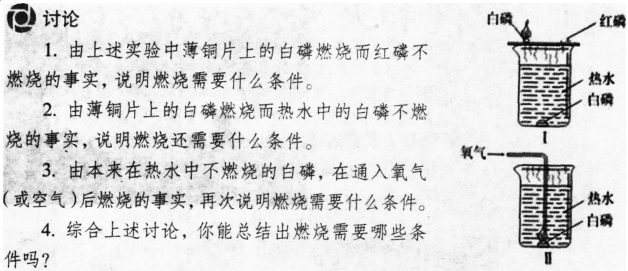 讨论
1. 由上述实验中薄铜片上的白磷燃烧而红磷不
燃烧的事实，说明燃烧需要什么条件。
2. 由薄铜片上的白磷燃烧而热水中的白磷不燃
烧的事实，说明燃烧还需要什么条件。
3. 由本来在热水中不燃烧的白磷，在通入氧气
(或空气)后燃烧的事实，再次说明燃烧需要什么条件。
4. 综合上述讨论，你能总结出燃烧需要哪些条
件吗？
白磷
红磷
热水
白磷
I
氧气
热水
白磷
II